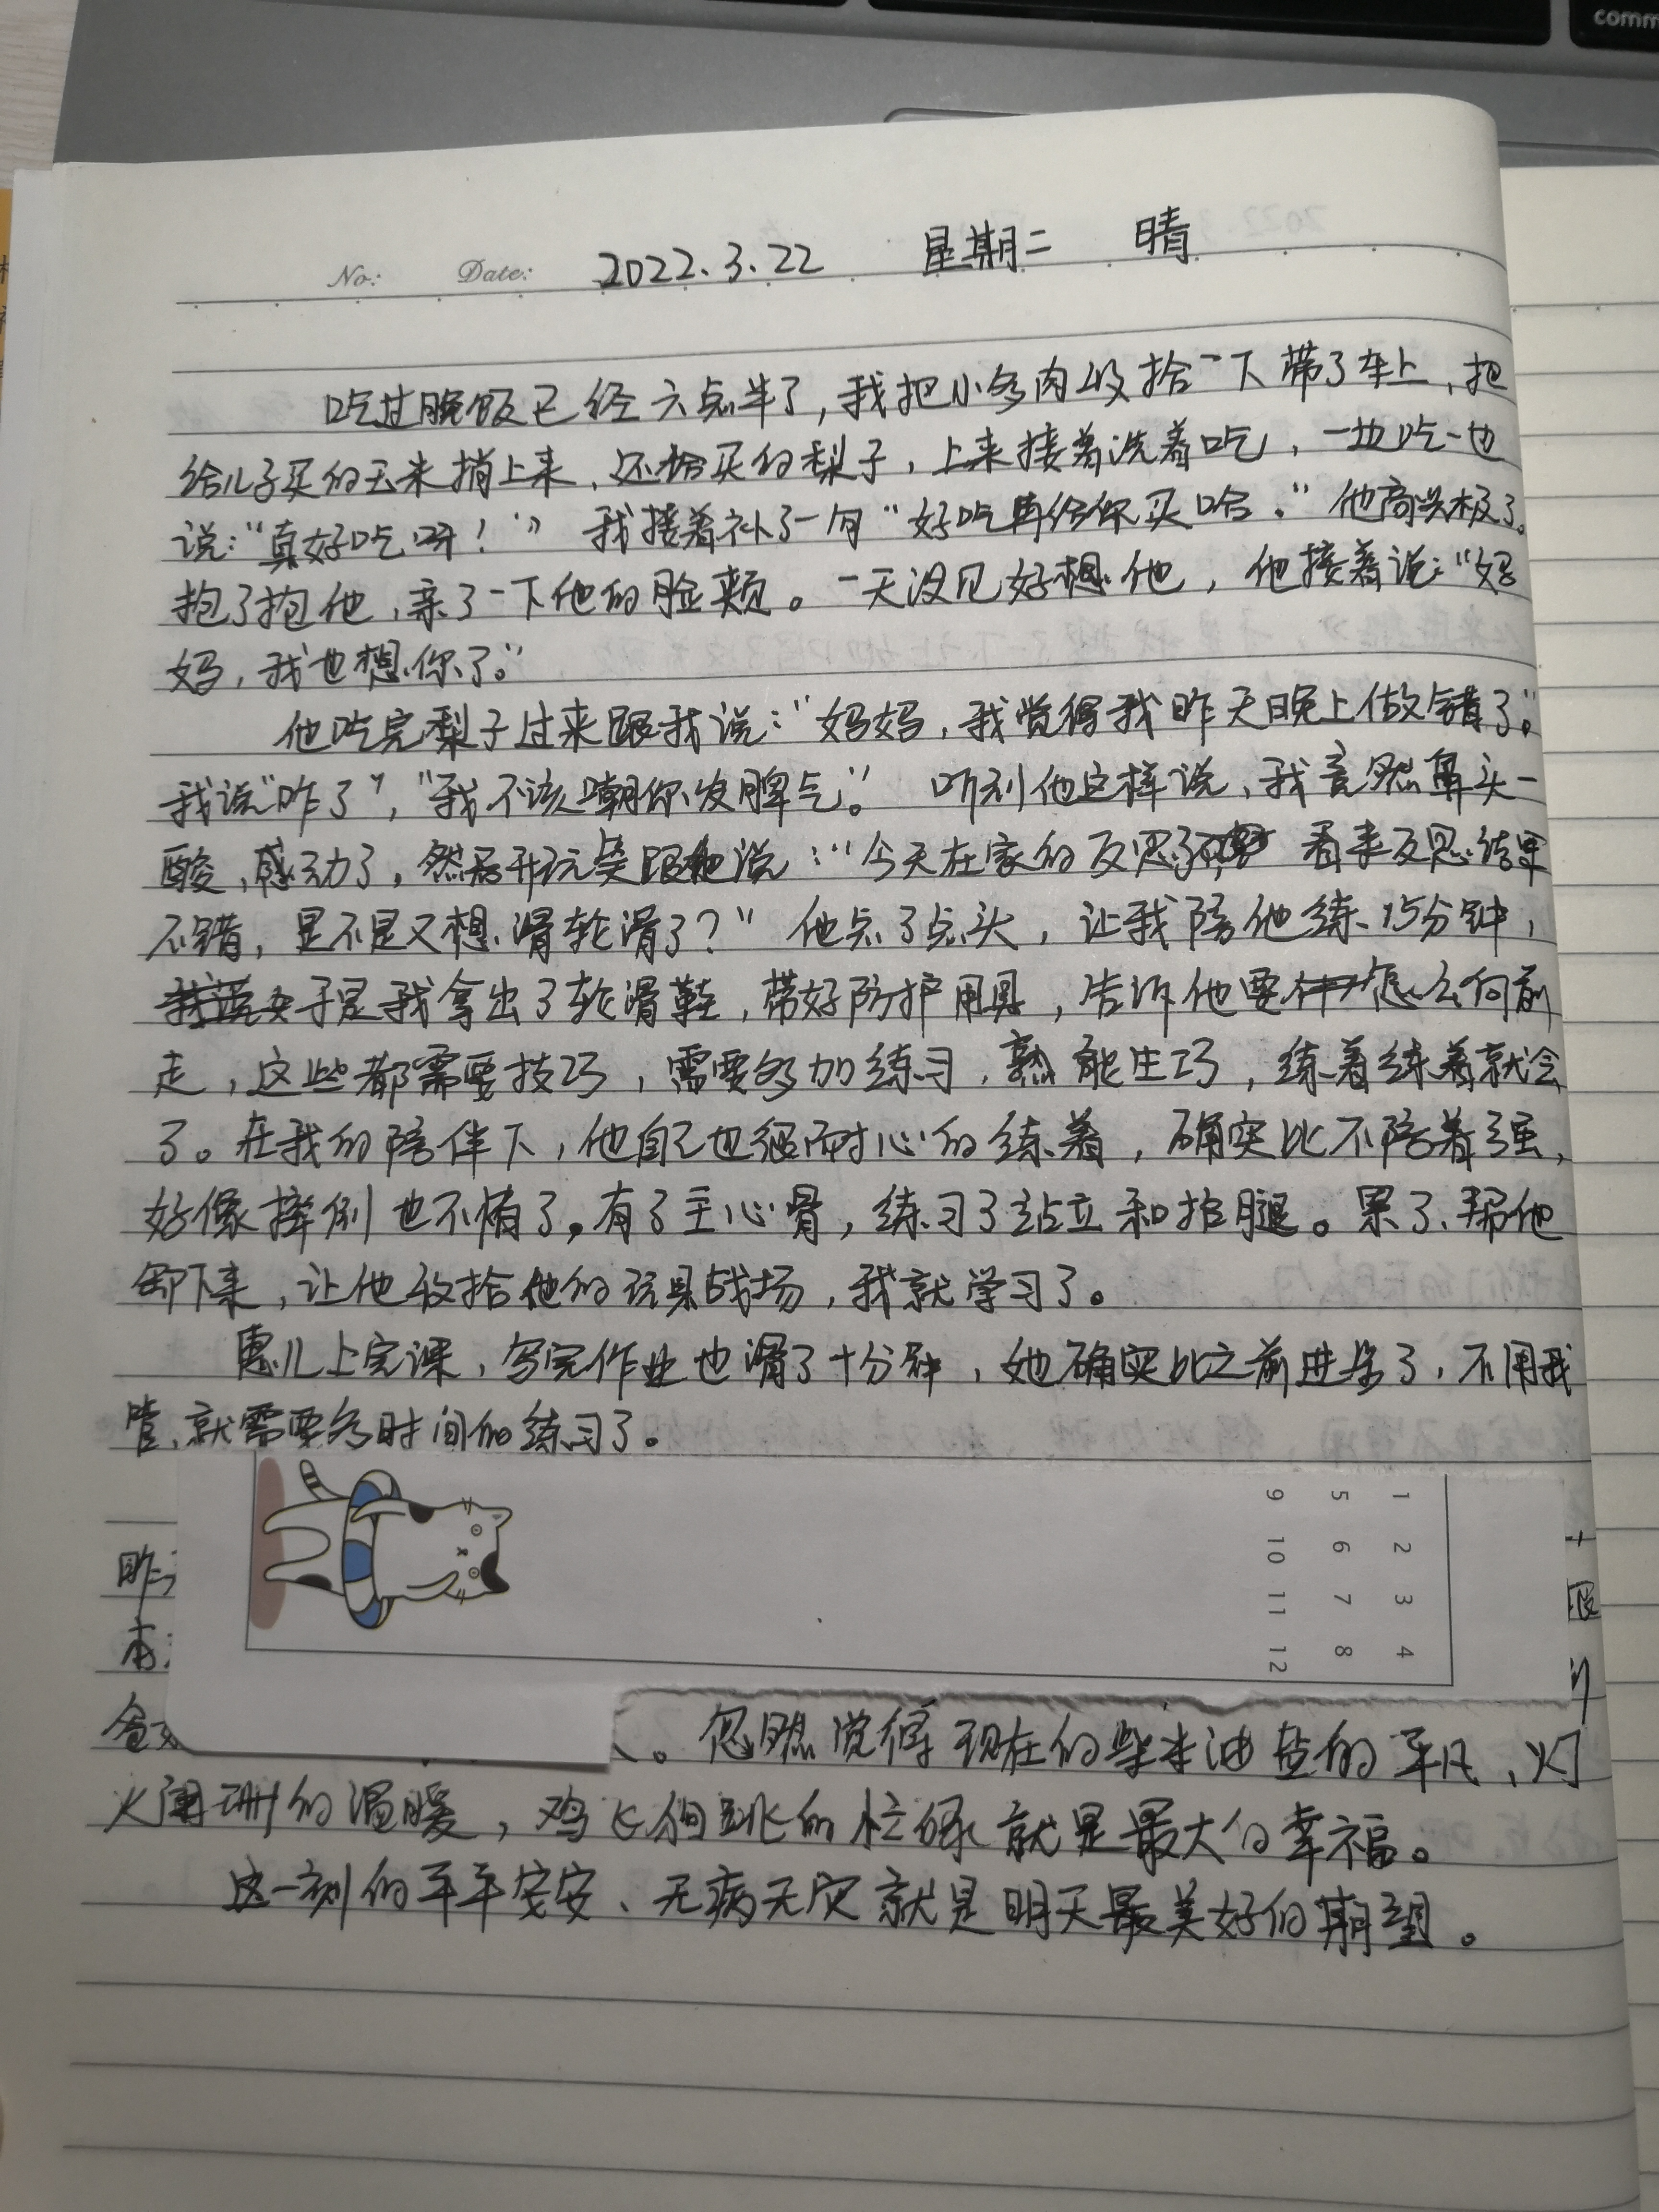 comm
No: Date: 2022.3.22 星期二 晴
吃过晚饭已经六点半了,我把小多肉收拾一下带了车上,把
给儿子买的玉米捎上来,还给买的梨子,上来接着洗着吃,一边吃一边
说:“真好吃呀!”我接着补了一句“好吃再给你买哈。”他高兴极了。
抱了抱他,亲了一下他的脸颊。一天没见好想他,他接着说:“妈
妈,我也想你了。”
他吃完梨子过来跟我说:“妈妈,我觉得我昨天晚上做错了。”
我说“咋了”,“我不该嘲你发脾气。”听到他这样说,我竟然鼻头一
酸,感动了,然后开玩笑跟他说:“今天在家的反思 看来反思结果
不错,是不是又想滑轮滑了?”他点了点头,让我陪他练15分钟,
于是我拿出了轮滑鞋,带好防护用具,告诉他要怎么向前
走,这些都需要技巧,需要多加练习,熟能生巧,练着练着就会
了。在我的陪伴下,他自己也很耐心的练着,确实比不陪着强,
好像摔倒也不怕了。有了主心骨,练习了站立和抬腿。累了,帮他
卸下来,让他收拾他的玩具战场,我就学习了。
惠儿上完课,写完作业也滑了十分钟,她确实比之前进步了,不用我
管,就需要多时间的练习了。
1 2 3 4
5 6 7 8
9 10 11 12
昨
。忽然觉得现在的柴米油盐的平凡、灯
火阑珊的温暖,鸡飞狗跳的忙碌就是最大的幸福。
这一刻的平平安安、无病无灾就是明天最美好的期望。